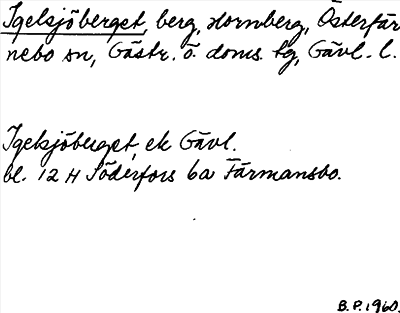 Igelsjöberget, berg, Hornberg, Österfär
nebo sn, Gästr. ö. doms. tg, Gävl. l.
Igelsjöberget, ek Gävl.
bl. 12 H Söderfors 6a Färmansbo.
B.P. 1960.